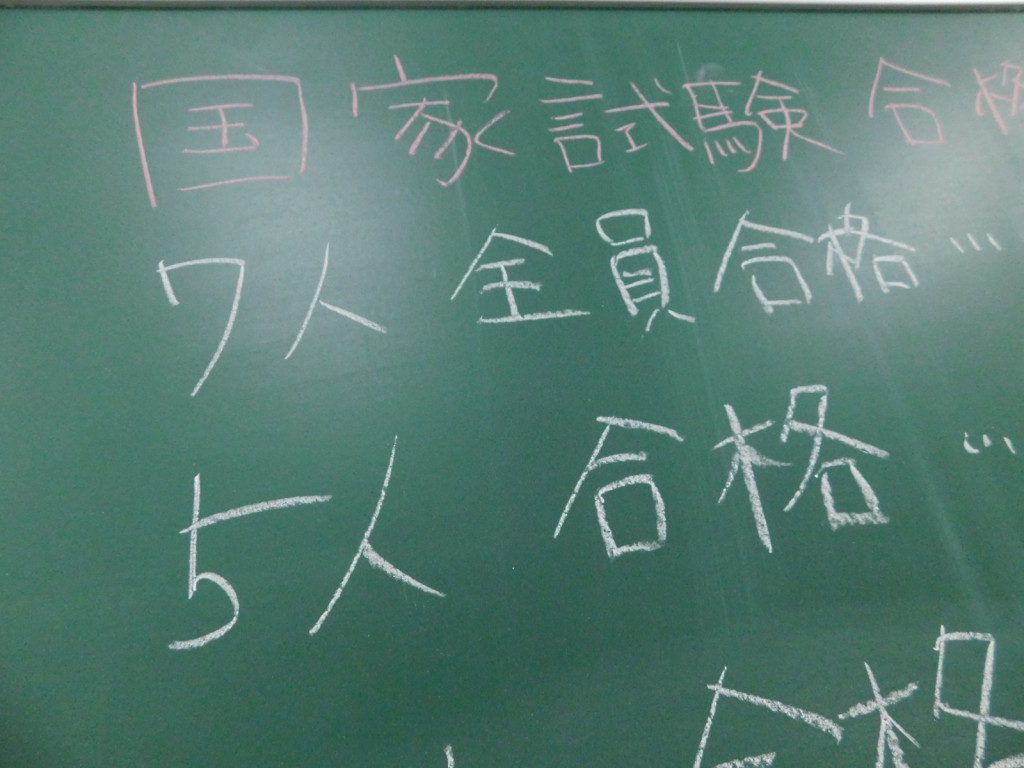 国家試験合格
7人 全員合格…
5人 合格…
合格